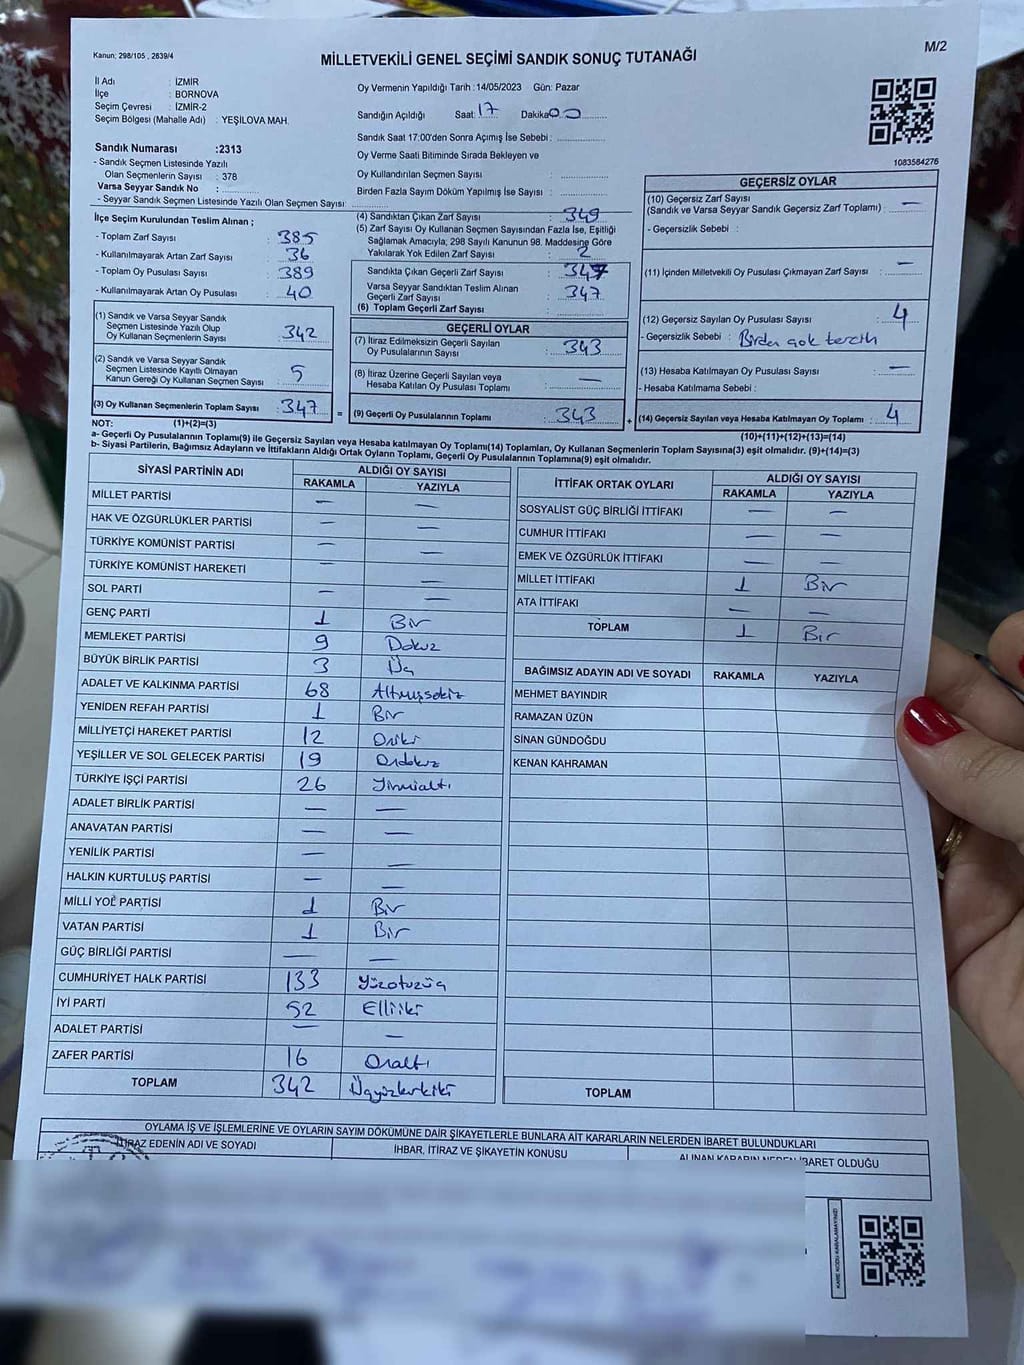 Kanun: 298/105 , 2839/4
MİLLETVEKİLİ GENEL SEÇİMİ SANDIK SONUÇ TUTANAĞI
M/2
İl Adı : İZMİR
İlçe : BORNOVA
Seçim Çevresi : İZMİR-2
Seçim Bölgesi (Mahalle Adı) : YEŞİLOVA MAH.
Oy Vermenin Yapıldığı Tarih : 14/05/2023 Gün: Pazar
Sandığın Açıldığı Saat: 17 Dakika 00
Sandık Saat 17:00'den Sonra Açımış İse Sebebi :
Oy Verme Saati Bitiminde Sırada Bekleyen ve
Oy Kullandırılan Seçmen Sayısı :
Birden Fazla Sayım Döküm Yapılmış İse Sayısı :
1083584276
Sandık Numarası :2313
- Sandık Seçmen Listesinde Yazılı
Olan Seçmenlerin Sayısı : 378
Varsa Seyyar Sandık No :
- Seyyar Sandık Seçmen Listesinde Yazılı Olan Seçmen Sayısı:
İlçe Seçim Kurulundan Teslim Alınan ;
- Toplam Zarf Sayısı : 385
- Kullanılmayarak Artan Zarf Sayısı : 36
- Toplam Oy Pusulası Sayısı : 389
- Kullanılmayarak Artan Oy Pusulası : 40
(1) Sandık ve Varsa Seyyar Sandık
Seçmen Listesinde Yazılı Olup
Oy Kullanan Seçmenlerin Sayısı : 342
(2) Sandık ve Varsa Seyyar Sandık
Seçmen Listesinde Kayıtlı Olmayan
Kanun Gereği Oy Kullanan Seçmen Sayısı : 5
(3) Oy Kullanan Seçmenlerin Toplam Sayısı : 347
(1)+(2)=(3)
(4) Sandıktan Çıkan Zarf Sayısı : 349
(5) Zarf Sayısı Oy Kullanan Seçmen Sayısından Fazla İse, Eşitliği
Sağlamak Amacıyla; 298 Sayılı Kanunun 98. Maddesine Göre
Yakılarak Yok Edilen Zarf Sayısı : 2
Sandıkta Çıkan Geçerli Zarf Sayısı : 347
Varsa Seyyar Sandıktan Teslim Alınan
Geçerli Zarf Sayısı : 347
(6) Toplam Geçerli Zarf Sayısı :
GEÇERLİ OYLAR
(7) İtiraz Edilmeksizin Geçerli Sayılan
Oy Pusulalarının Sayısı : 343
(8) İtiraz Üzerine Geçerli Sayılan veya
Hesaba Katılan Oy Pusulası Toplamı : —
= (9) Geçerli Oy Pusulalarının Toplamı : 343 +
GEÇERSİZ OYLAR
(10) Geçersiz Zarf Sayısı
(Sandık ve Varsa Seyyar Sandık Geçersiz Zarf Toplamı) : —
- Geçersizlik Sebebi :
(11) İçinden Milletvekili Oy Pusulası Çıkmayan Zarf Sayısı : —
(12) Geçersiz Sayılan Oy Pusulası Sayısı : 4
- Geçersizlik Sebebi : Birden çok tercih
(13) Hesaba Katılmayan Oy Pusulası Sayısı : —
- Hesaba Katılmama Sebebi :
(14) Geçersiz Sayılan veya Hesaba Katılmayan Oy Toplamı : 4
(10)+(11)+(12)+(13)=(14)
NOT:
a- Geçerli Oy Pusulalarının Toplamı(9) ile Geçersiz Sayılan veya Hesaba katılmayan Oy Toplamı(14) Toplamları, Oy Kullanan Seçmenlerin Toplam Sayısına(3) eşit olmalıdır. (9)+(14)=(3)
b- Siyasi Partilerin, Bağımsız Adayların ve İttifakların Aldığı Ortak Oyların Toplamı, Geçerli Oy Pusulalarının Toplamına(9) eşit olmalıdır.
SİYASİ PARTİNİN ADI ALDIĞI OY SAYISI
RAKAMLA YAZIYLA
MİLLET PARTİSİ — —
HAK VE ÖZGÜRLÜKLER PARTİSİ — —
TÜRKİYE KOMÜNİST PARTİSİ — —
TÜRKİYE KOMÜNİST HAREKETİ — —
SOL PARTİ — —
GENÇ PARTİ 1 Bir
MEMLEKET PARTİSİ 9 Dokuz
BÜYÜK BİRLİK PARTİSİ 3 Üç
ADALET VE KALKINMA PARTİSİ 68 Altmışsekiz
YENİDEN REFAH PARTİSİ 1 Bir
MİLLİYETÇİ HAREKET PARTİSİ 12 Oniki
YEŞİLLER VE SOL GELECEK PARTİSİ 19 Ondokuz
TÜRKİYE İŞÇİ PARTİSİ 26 Yirmialtı
ADALET BİRLİK PARTİSİ — —
ANAVATAN PARTİSİ — —
YENİLİK PARTİSİ — —
HALKIN KURTULUŞ PARTİSİ — —
MİLLİ YOL PARTİSİ 1 Bir
VATAN PARTİSİ 1 Bir
GÜÇ BİRLİĞİ PARTİSİ — —
CUMHURİYET HALK PARTİSİ 133 Yüzotuzüç
İYİ PARTİ 52 Elliiki
ADALET PARTİSİ — —
ZAFER PARTİSİ 16 Onaltı
TOPLAM 342 Üçyüzkırkiki
İTTİFAK ORTAK OYLARI ALDIĞI OY SAYISI
RAKAMLA YAZIYLA
SOSYALİST GÜÇ BİRLİĞİ İTTİFAKI — —
CUMHUR İTTİFAKI — —
EMEK VE ÖZGÜRLÜK İTTİFAKI — —
MİLLET İTTİFAKI 1 Bir
ATA İTTİFAKI — —
TOPLAM 1 Bir
BAĞIMSIZ ADAYIN ADI VE SOYADI RAKAMLA YAZIYLA
MEHMET BAYINDIR
RAMAZAN ÜZÜN
SİNAN GÜNDOĞDU
KENAN KAHRAMAN
TOPLAM
OYLAMA İŞ VE İŞLEMLERİNE VE OYLARIN SAYIM DÖKÜMÜNE DAİR ŞİKAYETLERLE BUNLARA AİT KARARLARIN NELERDEN İBARET BULUNDUKLARI
İTİRAZ EDENİN ADI VE SOYADI
İHBAR, İTİRAZ VE ŞİKAYETİN KONUSU
ALINAN KARARIN NEDEN İBARET OLDUĞU
KARE KODU KARALAMAYINIZ!